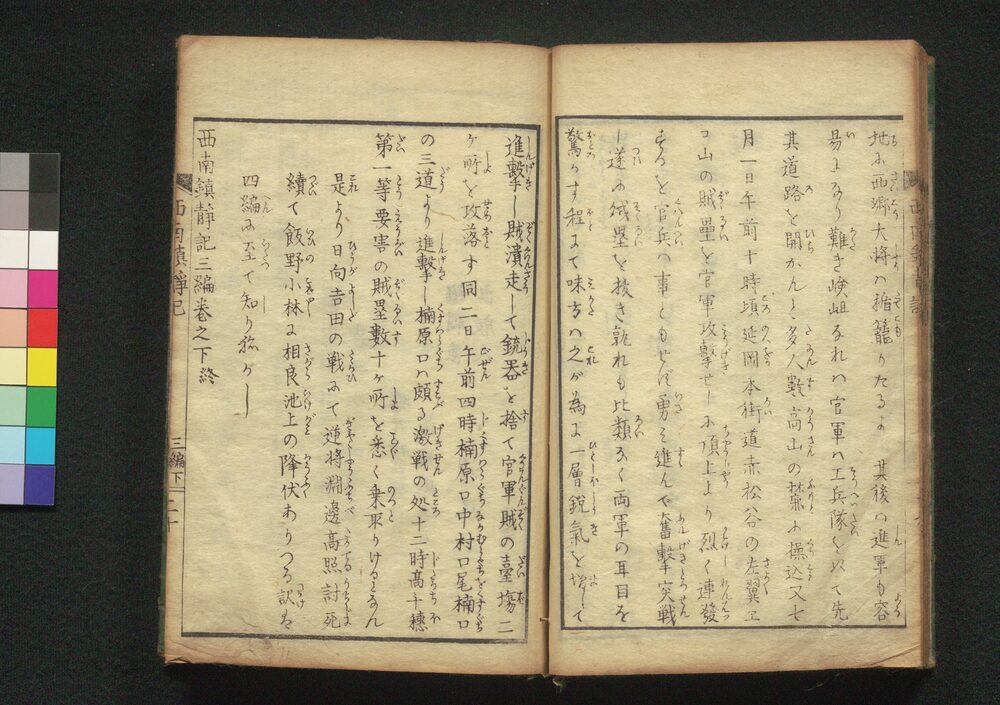 地に西郷大将ハ楯籠りたるよ其後の進軍も容
易になり難き嶮岨なれハ官軍ハ工兵隊を以て先
其道路を開かんと多人数高山の葉に操込又七
月一日午前十時頃延岡本街道赤松谷の左翼工
コ山の賊塁を官軍攻撃せしに頂上より烈く連發
するを官兵ハ事ともせず勇を進んで奮撃突戦
し遂に賊塁を抜き孰れも比類なく両軍の耳目を
驚かす程にて味方ハ之が為に一層鋭氣を増して
進撃し賊潰走して銃器を捨て官軍賊の臺場二
ヶ所を攻落す同二日午前四時楠原口中村口尾楠口
の三道より進撃し楠原口ハ頗る激戦の処十二時高十穂
第一等要害の賊塁數十ヶ所を悉く乗取りけるとなん
是より日向吉田の戦にて逆将淵邊高照討死
續て飯野小林に相良池上の降伏ありつる訳は
四編に至て知り給がし
西南鎮静記三編巻之下終
三編下